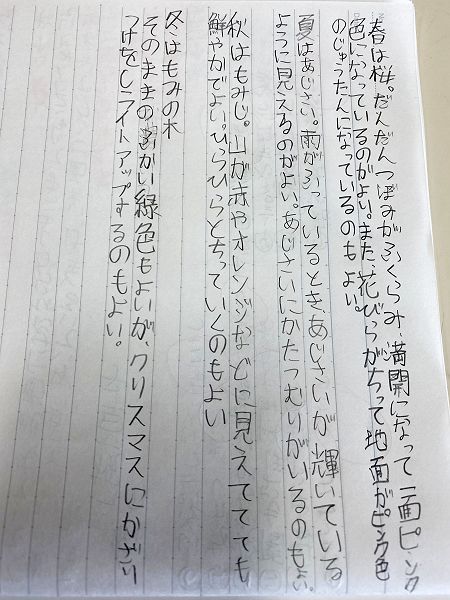 春は桜。だんだんつぼみがふくらみ、満開になって一面ピンク
色になっているのがよい。また、花びらがちって地面がピンク色
のじゅうたんになっているのもよい。
夏はあじさい。雨がふっているとき、あじさいが輝いている
ように見えるのがよい。あじさいにかたつむりがいるのもよい。
秋はもみじ。山が赤やオレンジなどに見えてとても
鮮やかでよい。ひらひらとちっていくのもよい
冬はもみの木
そのままのふかい緑色もよいが、クリスマスにかざり
つけをしライトアップするのもよい。